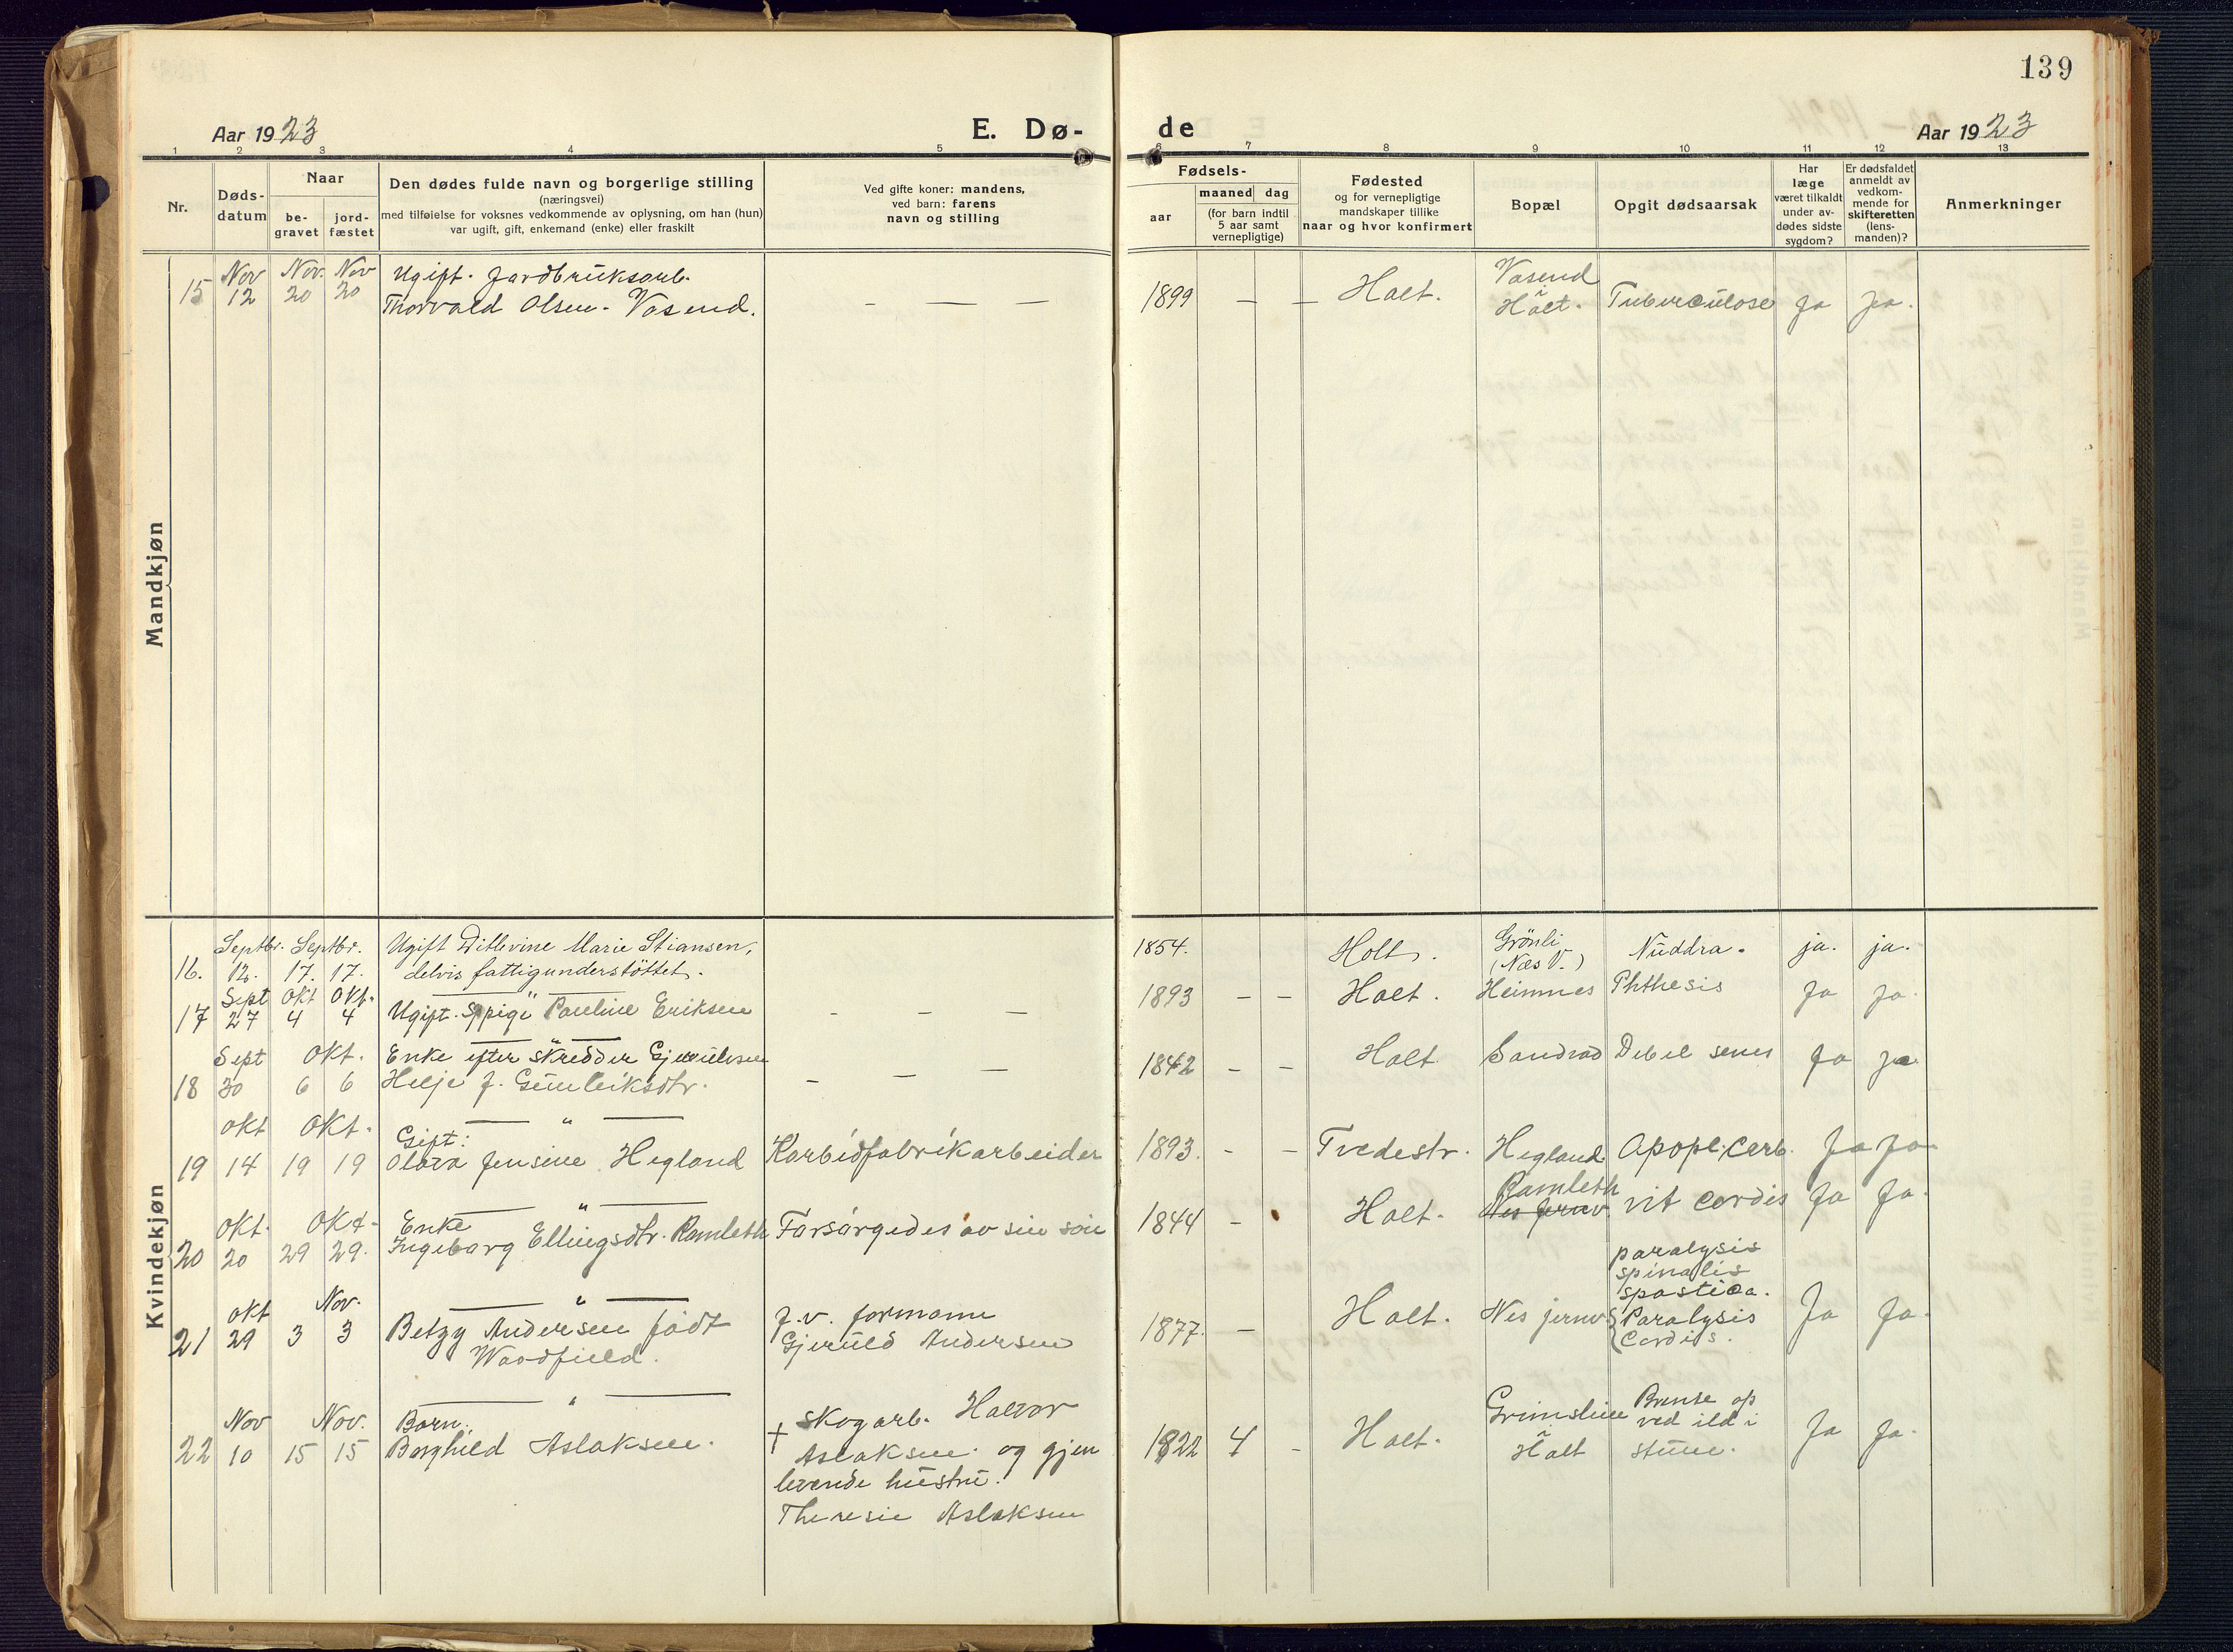 139
Aar 1923
E. Dø-
de
Aar 1923
1 2 3 4 5 6 7 8 9 10 11 12 13
Nr.
Døds-
datum
Naar
be-
gravet
jord-
fæstet
Den dødes fulde navn og borgerlige stilling
(næringsvei)
med tilføielse for voksnes vedkommende av oplysning, om han (hun)
var ugift, gift, enkemand (enke) eller fraskilt
Ved gifte koner: mandens,
ved barn: farens
navn og stilling
Fødsels-
aar
maaned dag
(for barn indtil
5 aar samt
vernepligtige)
Fødested
og for vernepligtige
mandskaper tillike
naar og hvor konfirmert
Bopæl
Opgit dødsaarsak
Har
læge
været tilkaldt
under av-
dødes sidste
sygdom?
Er dødsfaldet
anmeldt av
vedkom-
mende for
skifteretten
(lens-
manden)?
Anmerkninger
Mandkjøn
Nov Nov. Nov Ugift. Jordbruksarb. Vasend
15 12 20 20 Thorvald Olsen. Vasend. – — — 1899 — — Holt. i Holt. Tuberculose Ja Ja.
Kvindekjøn
Septbr. Septbr. Ugift Ditlevine Marie Stiansen, 1854. Holt. Grönli Nuddra. ja. ja.
16. 12. 17. 17. delvis fattigunderstöttet. (Næs V.)
Sept Okt Okt. — " — 1893 – – Holt. Heimnes Phthesis Ja Ja.
17 27 4 4 Ugift. Spige Pauline Eriksen – – –
Sept Okt. Enke efter skredder Gjerulvsen
18 30 6 6 Helje J. Gunleiksdtr. – – – 1842 – – Holt Sandrod Debil senes Ja Ja
Okt Okt. — " —
Gift:
19 14 19 19 Olava Jensine Hegland Karbidfabrikarbeider 1893. - – Tvedestr. Hegland Apopl. cerb. Ja Ja
— " —
Okt. Okt. Enke Ramleth
20 20 29 29. Ingeborg Ellingsdtr. Ramleth Forsørgedes av sin søn 1844 – Holt. Nes jernv. vit cordis Ja Ja.
— " —
Okt Nov. J. v. formann
21 29 3 3 Betzy Andersen født Gjeruld Andersen 1877. – Holt. Nes jernv. paralysis Ja Ja.
Woodfield. spinalis
spastica.
Paralysis
Cordis.
— " —
Nov Nov. Barn. + skogarb. Halvor Brente op
22 10 15 15 Borghild Aslaksen. Aslaksen og gjen 1922 4 - Holt. i ved ild i Ja Ja.
levende hustru. Holt stuen.
Theresie Aslaksen